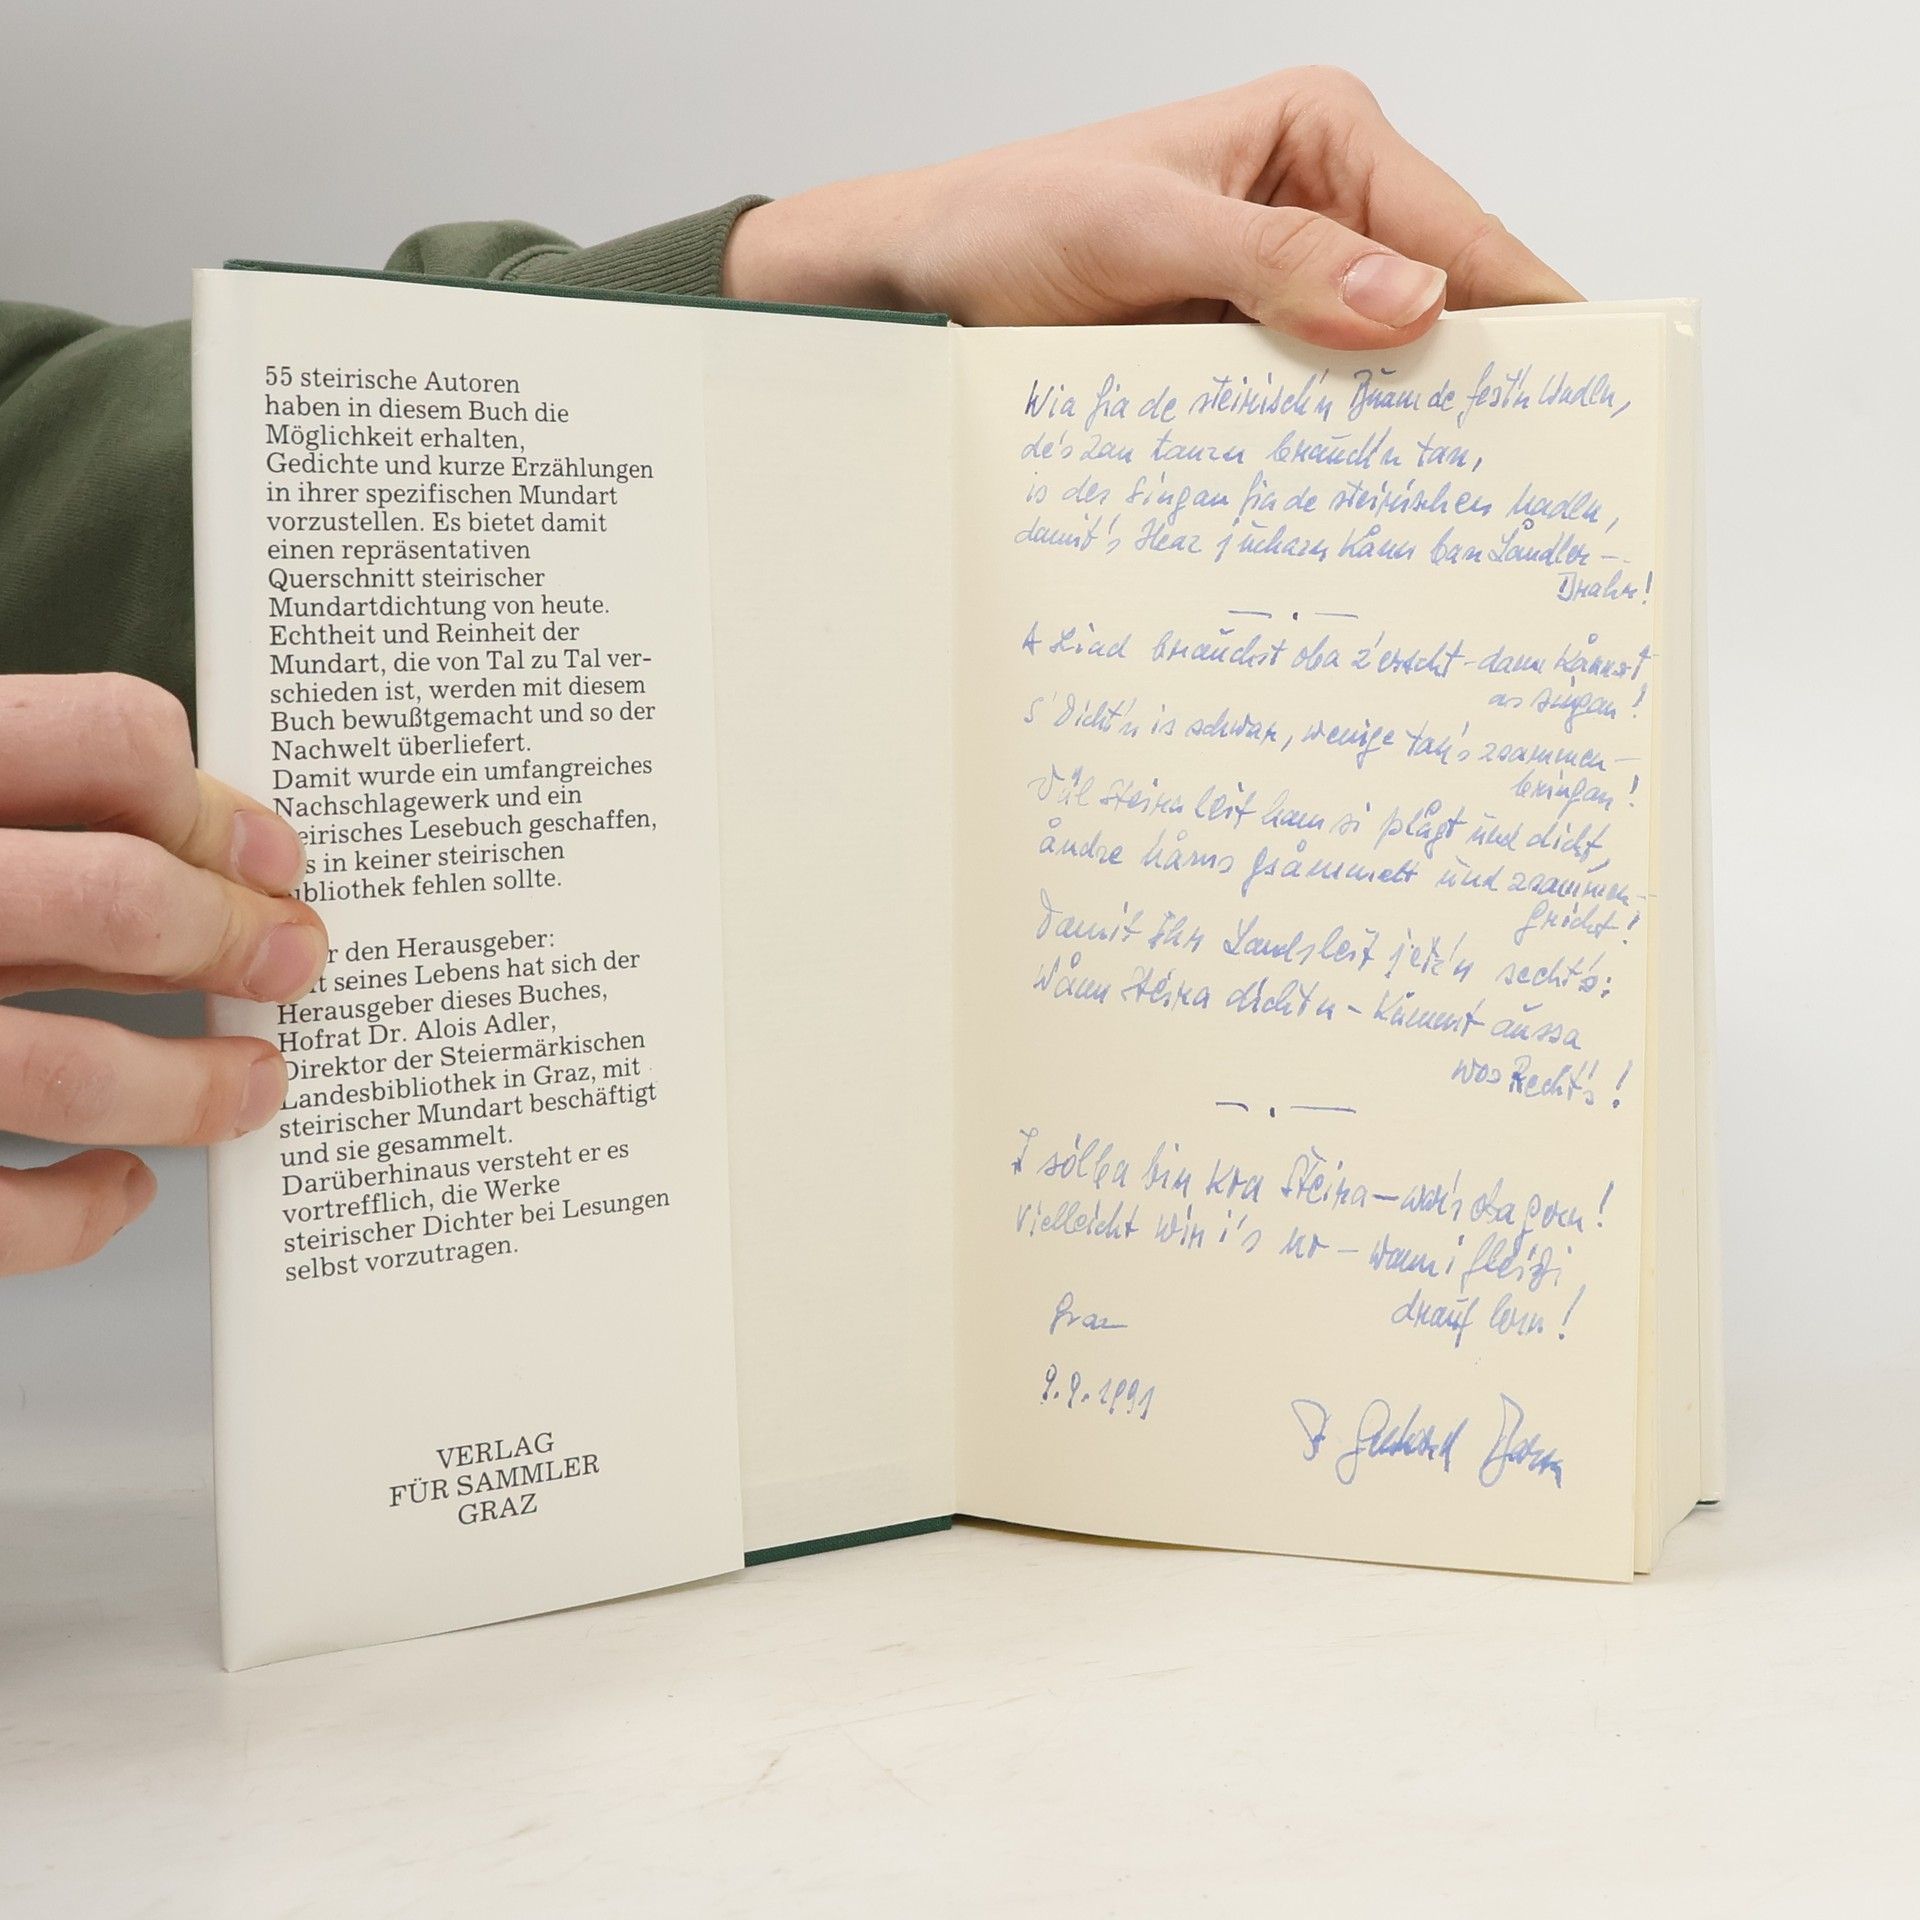 55 steirische Autoren
haben in diesem Buch die
Möglichkeit erhalten,
Gedichte und kurze Erzählungen
in ihrer spezifischen Mundart
vorzustellen. Es bietet damit
einen repräsentativen
Querschnitt steirischer
Mundartdichtung von heute.
Echtheit und Reinheit der
Mundart, die von Tal zu Tal ver-
schieden ist, werden mit diesem
Buch bewußtgemacht und so der
Nachwelt überliefert.
Damit wurde ein umfangreiches
Nachschlagewerk und ein
eirisches Lesebuch geschaffen,
s in keiner steirischen
ibliothek fehlen sollte.
r den Herausgeber:
t seines Lebens hat sich der
Herausgeber dieses Buches,
Hofrat Dr. Alois Adler,
Direktor der Steiermärkischen
Landesbibliothek in Graz, mit
steirischer Mundart beschäftigt
und sie gesammelt.
Darüberhinaus versteht er es
vortrefflich, die Werke
steirischer Dichter bei Lesungen
selbst vorzutragen.
VERLAG
FÜR SAMMLER
GRAZ
Wia fia de steirisch'n Buam de fest'n Wadln,
de's zan tanzn brauch'n tan,
is des Singan fia de steirischen Madln,
damit's Herz juchazn kånn ban Låndler-
Drahn!
A Liad brauchst oba z'erscht - dann kånnst
as singan!
S'Dicht'n is schwar, wenige tan's zsammen-
bringan!
Vül Steira leit ham si plågt und dicht,
åndre håms gsåmmelt und zsammen-
gricht!
Damit Ihr Landsleit jetz'n secht's:
Wånn Steira dicht'n - kummt aussa
wos Recht's!
I sölba bin koa Steira - war's oba gern!
Vielleicht wir i's no - wann i fleißi
drauf lern!
Graz
9.9.1991